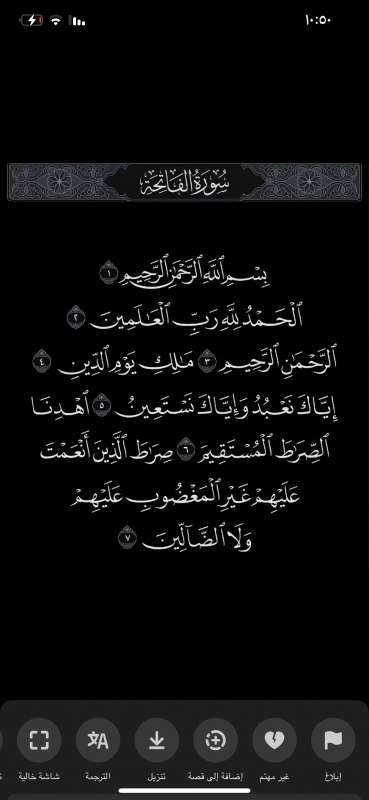 ١٠:٥٠
سُورَةُ الفَاتِحَةِ
بِسْمِ ٱللَّهِ ٱلرَّحْمَٰنِ ٱلرَّحِيمِ ١
ٱلْحَمْدُ لِلَّهِ رَبِّ ٱلْعَٰلَمِينَ ٢
ٱلرَّحْمَٰنِ ٱلرَّحِيمِ ٣ مَٰلِكِ يَوْمِ ٱلدِّينِ ٤
إِيَّاكَ نَعْبُدُ وَإِيَّاكَ نَسْتَعِينُ ٥ ٱهْدِنَا
ٱلصِّرَٰطَ ٱلْمُسْتَقِيمَ ٦ صِرَٰطَ ٱلَّذِينَ أَنْعَمْتَ
عَلَيْهِمْ غَيْرِ ٱلْمَغْضُوبِ عَلَيْهِمْ
وَلَا ٱلضَّآلِّينَ ٧
إبلاغ غير مهتم إضافة إلى قصة تنزيل الترجمة شاشة خالية